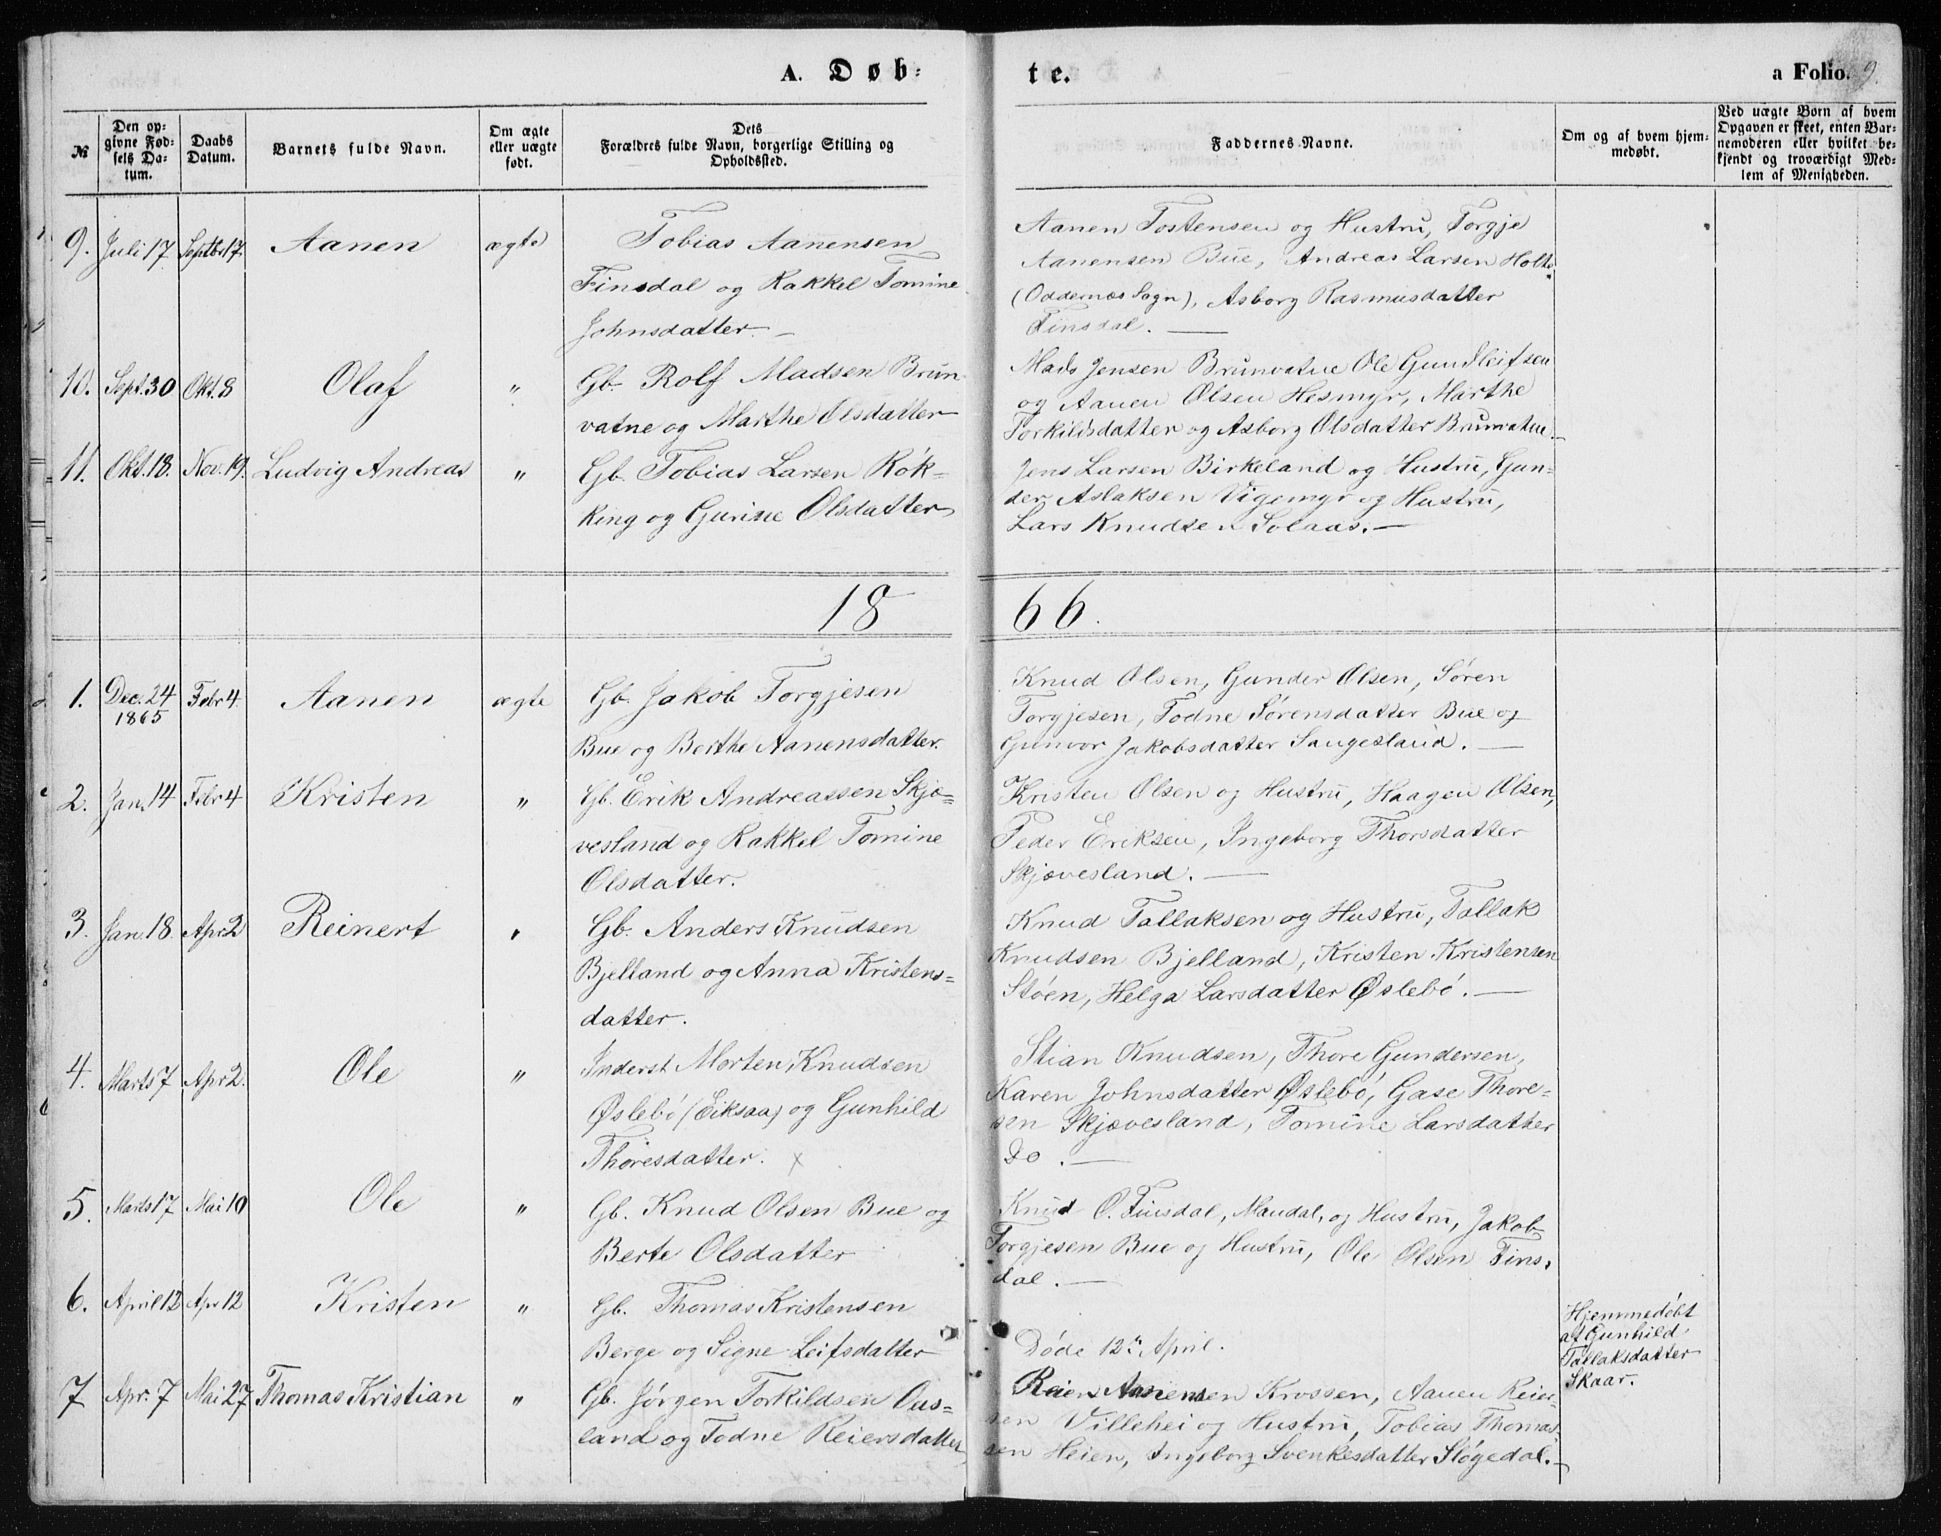 A. Døb-
te.
a Folio. 9.
№
Den op-
givne Fød-
sels Da-
tum.
Daabs
Datum.
Barnets fulde Navn.
Om ægte
eller uægte
født.
Dets
Forældres fulde Navn, borgerlige Stilling og
Opholdssted.
Faddernes Navne.
Om og af hvem hjem-
medøbt.
Ved uægte Børn af hvem
Opgaven er skeet, enten Bar-
nemoderen eller hvilket be-
kjendt og troværdigt Med-
lem af Menigheden.
9. Juli 17. Septbr 17. Aanen ægte
Tobias Aanensen
Finsdal og Rakkel Tomine
Johnsdatter. —
Aanen Tostensen og Hustru, Torgje
Aanensen Bue, Andreas Larsen Holte
(Oddernes Sogn), Asborg Rasmusdatter
Finsdal. —
10. Sept. 30 Okt. 8 Olaf "
Gb. Rolf Madsen Brun-
vatne og Marthe Olsdatter
Mads Jensen Brunvatne Ole Gundleifsen
og Aanen Olsen Hesmyr, Marthe
Torkildsdatter og Asborg Olsdatter Brunvatne.
11. Okt. 18. Nov. 19. Ludvig Andreas "
Gb. Tobias Larsen Røk-
king og Gurine Olsdatter
Jens Larsen Birkeland og Hustru, Gun-
der Aslaksen Vigemyr og Hustru,
Lars Knudsen Solaas. —
18 66.
1. Dec. 24 1865 Febr 4. Aanen ægte
Gb. Jakob Torgjesen
Bue og Berthe Aanensdatter.
Knud Olsen, Gunder Olsen, Søren
Torgjesen, Todne Sørensdatter Bue og
Gunvor Jakobsdatter Sangesland. —
2. Jan. 14 Febr 4 Kristen "
Gb. Erik Andreassen Skjø-
vesland og Rakkel Tomine
Olsdatter.
Kristen Olsen og Hustru, Haagen Olsen,
Peder Eriksen, Ingeborg Thorsdatter
Skjøvesland. —
3. Jan. 18. Apr 2 Reinert "
Gb. Anders Knudsen
Bjelland og Anna Kristens-
datter.
Knud Tallaksen og Hustru, Tallak
Knudsen Bjelland, Kristen Kristensen
Støen, Helga Larsdatter Øslebø. —
4. Marts 7 Apr 2. Ole "
Inderst Morten Knudsen
Øslebø (Eiksaa) og Gunhild
Thoresdatter. x
Stian Knudsen, Thore Gundersen,
Karen Johnsdatter Øslebø, Gase Thore-
sen Skjøvesland, Tomine Larsdatter
Do. —
5. Marts 17 Mai 10 Ole "
Gb. Knud Olsen Bue og
Berte Olsdatter
Knud O. Finsdal, Mandal, og Hustru, Jakob
Torgjesen Bue og Hustru, Ole Olsen Fins-
dal. —
6. April 12 Apr 12 Kristen "
Gb. Thomas Kristensen
Berge og Signe Leifsdatter
Døde 12te April.
Hjemmedøbt
af Gunhild
Tallaksdatter
Skaar.
7 Apr. 7 Mai 27 Thomas Kristian "
Gb. Jørgen Torkildsen Ous-
land og Todne Reiersdatter
Reier Aanensen Krossen, Aanen Reier-
sen Villehei og Hustru, Tobias Thomas-
sen Heien, Ingeborg Svenkesdatter Støgedal. —